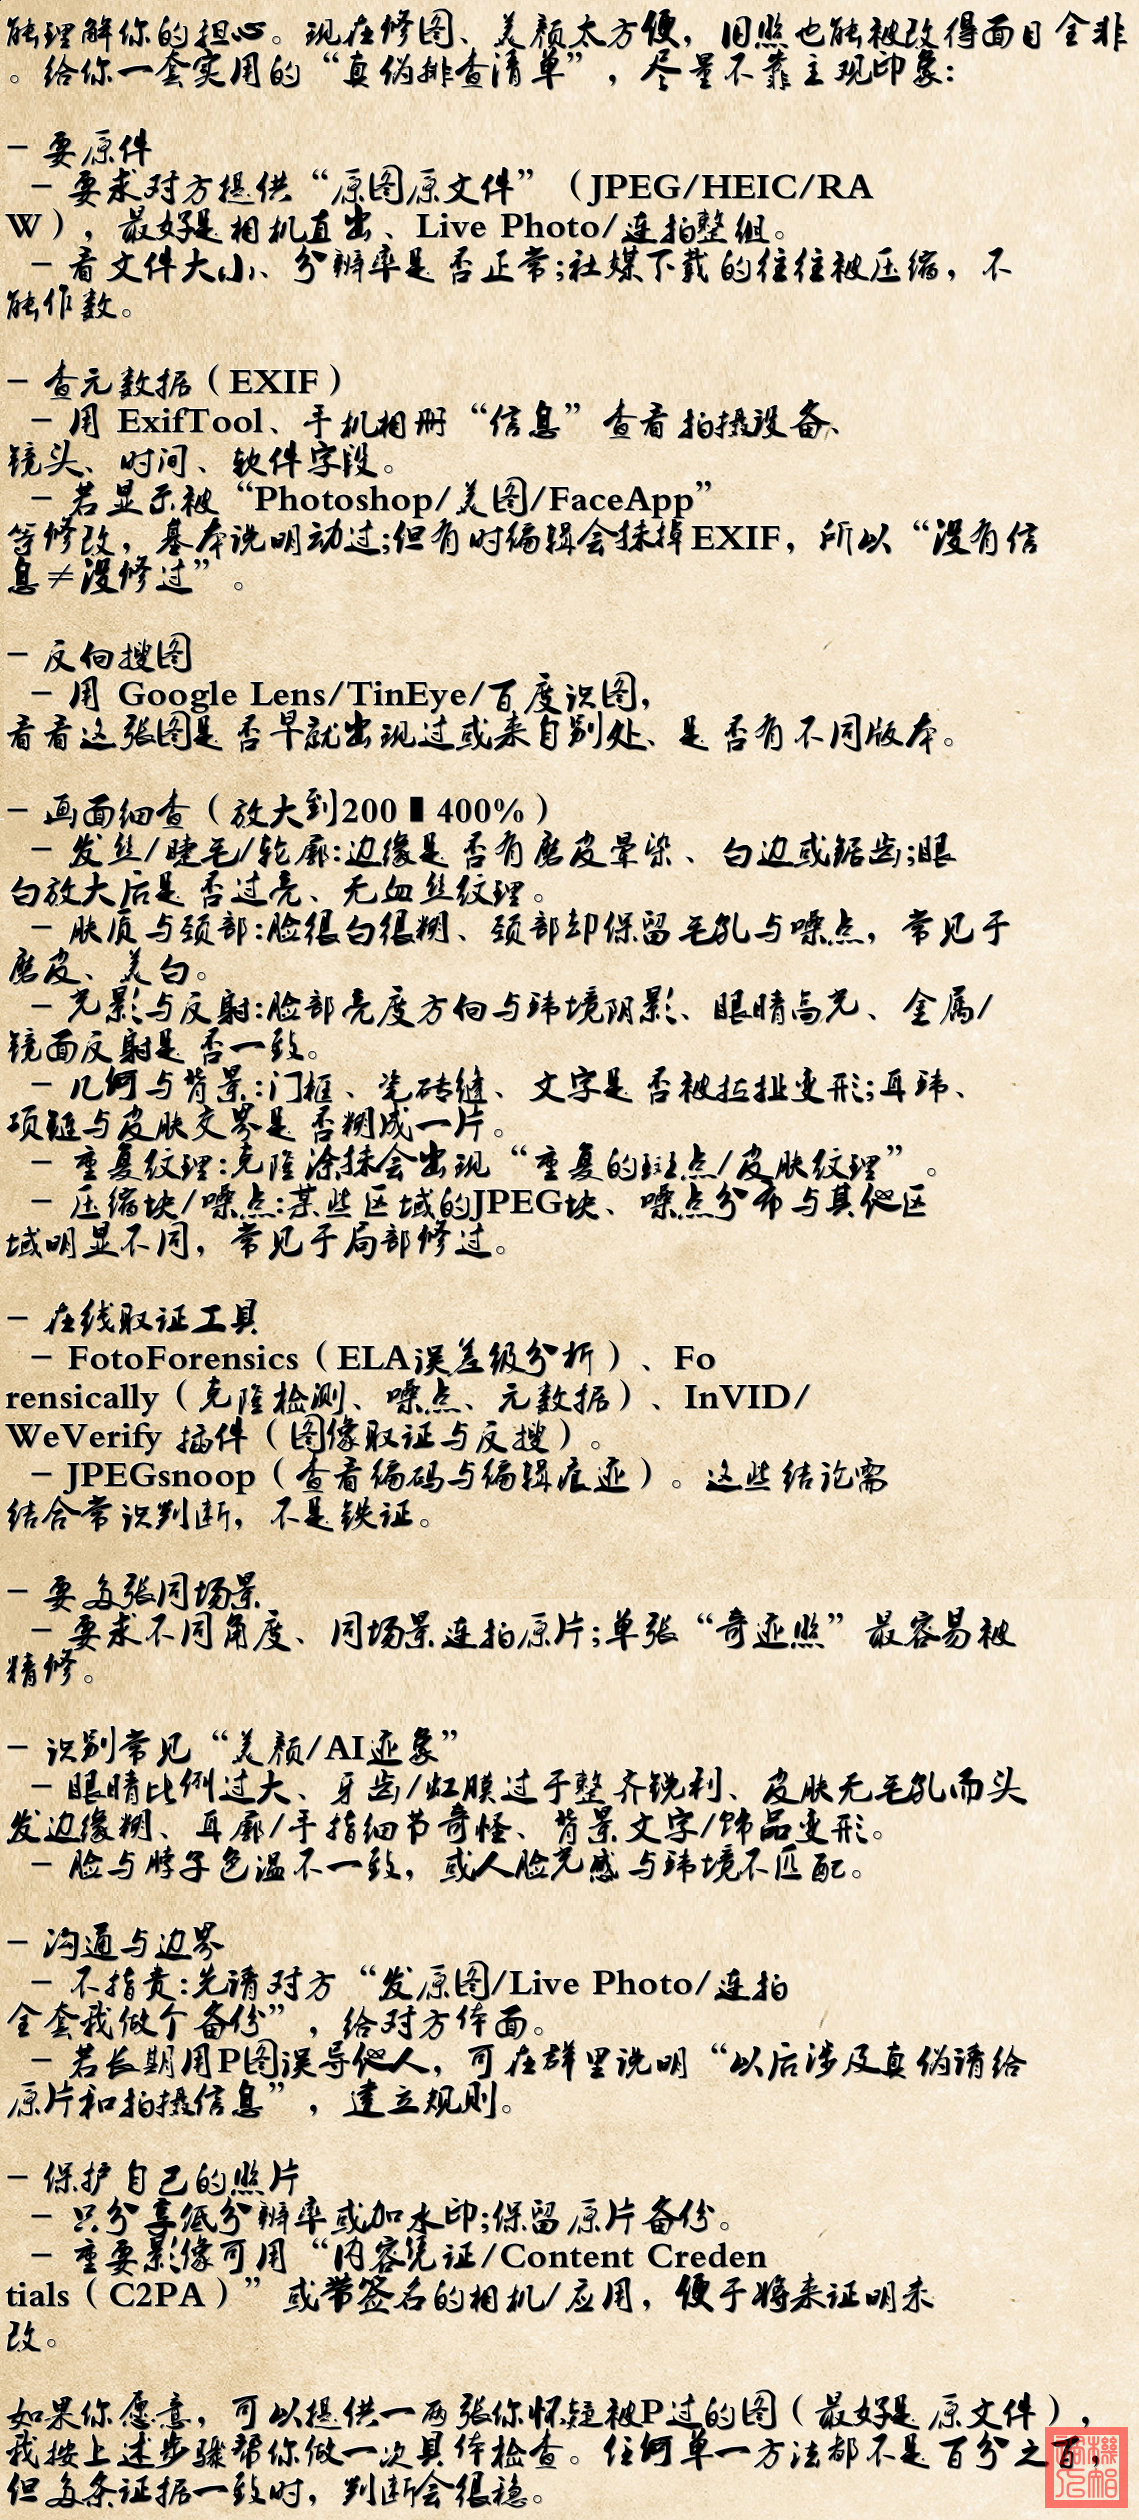 能理解你的担心。现在修图、美颜太方便，旧照也能被改得面目全非
。给你一套实用的“真伪排查清单”，尽量不靠主观印象：
- 要原件
- 要求对方提供“原图原文件”（JPEG/HEIC/RA
W），最好是相机直出、Live Photo/连拍整组。
- 看文件大小、分辨率是否正常；社媒下载的往往被压缩，不
能作数。
- 查元数据（EXIF）
- 用 ExifTool、手机相册“信息”查看拍摄设备、
镜头、时间、软件字段。
- 若显示被“Photoshop/美图/FaceApp”
等修改，基本说明动过；但有时编辑会抹掉EXIF，所以“没有信
息≠没修过”。
- 反向搜图
- 用 Google Lens/TinEye/百度识图，
看看这张图是否早就出现过或来自别处、是否有不同版本。
- 画面细查（放大到200▮400%）
- 发丝/睫毛/轮廓：边缘是否有磨皮晕染、白边或锯齿；眼
白放大后是否过亮、无血丝纹理。
- 肤质与颈部：脸很白很糊、颈部却保留毛孔与噪点，常见于
磨皮、美白。
- 光影与反射：脸部亮度方向与环境阴影、眼睛高光、金属/
镜面反射是否一致。
- 几何与背景：门框、瓷砖缝、文字是否被拉扯变形；耳环、
项链与皮肤交界是否糊成一片。
- 重复纹理：克隆涂抹会出现“重复的斑点/皮肤纹理”。
- 压缩块/噪点：某些区域的JPEG块、噪点分布与其他区
域明显不同，常见于局部修过。
- 在线取证工具
- FotoForensics（ELA误差级分析）、Fo
rensically（克隆检测、噪点、元数据）、InVID/
WeVerify 插件（图像取证与反搜）。
- JPEGsnoop（查看编码与编辑痕迹）。这些结论需
结合常识判断，不是铁证。
- 要多张同场景
- 要求不同角度、同场景连拍原片；单张“奇迹照”最容易被
精修。
- 识别常见“美颜/AI迹象”
- 眼睛比例过大、牙齿/虹膜过于整齐锐利、皮肤无毛孔而头
发边缘糊、耳廓/手指细节奇怪、背景文字/饰品变形。
- 脸与脖子色温不一致，或人脸光感与环境不匹配。
- 沟通与边界
- 不指责：先请对方“发原图/Live Photo/连拍
全套我做个备份”，给对方体面。
- 若长期用P图误导他人，可在群里说明“以后涉及真伪请给
原片和拍摄信息”，建立规则。
- 保护自己的照片
- 只分享低分辨率或加水印；保留原片备份。
- 重要影像可用“内容凭证/Content Creden
tials（C2PA）”或带签名的相机/应用，便于将来证明未
改。
如果你愿意，可以提供一两张你怀疑被P过的图（最好是原文件），
我按上述步骤帮你做一次具体检查。任何单一方法都不是百分之百，
但多条证据一致时，判断会很稳。